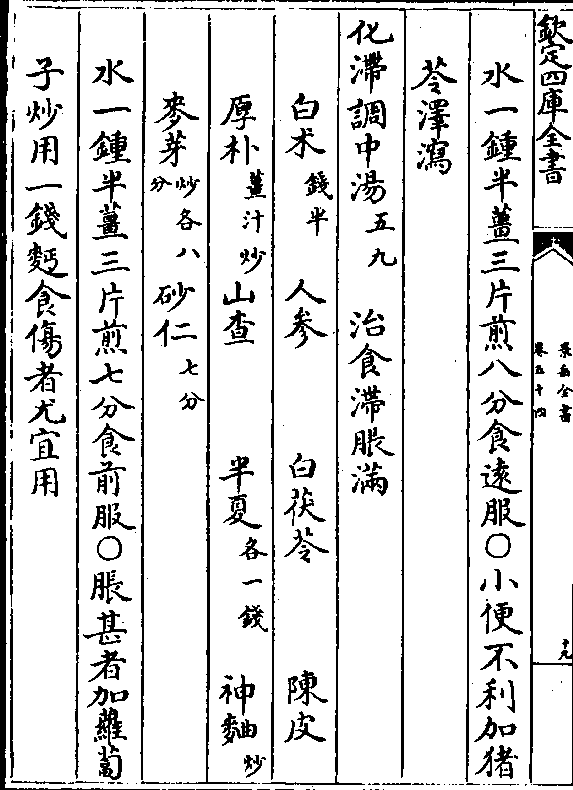 欽定四庫全書
景岳全書
卷五十四
十九
水一鍾半薑三片煎八分食遠服○小便不利加猪
苓澤瀉
化滯調中湯五九 治食滯脹滿
白术錢半 人參 白茯苓 陳皮
厚朴薑汁炒 山查 半夏各一錢 神麯炒
麥芽炒各八分 砂仁七分
水一鍾半薑三片煎七分食前服○脹甚者加蘿蔔
子炒用一錢麪食傷者尤宜用